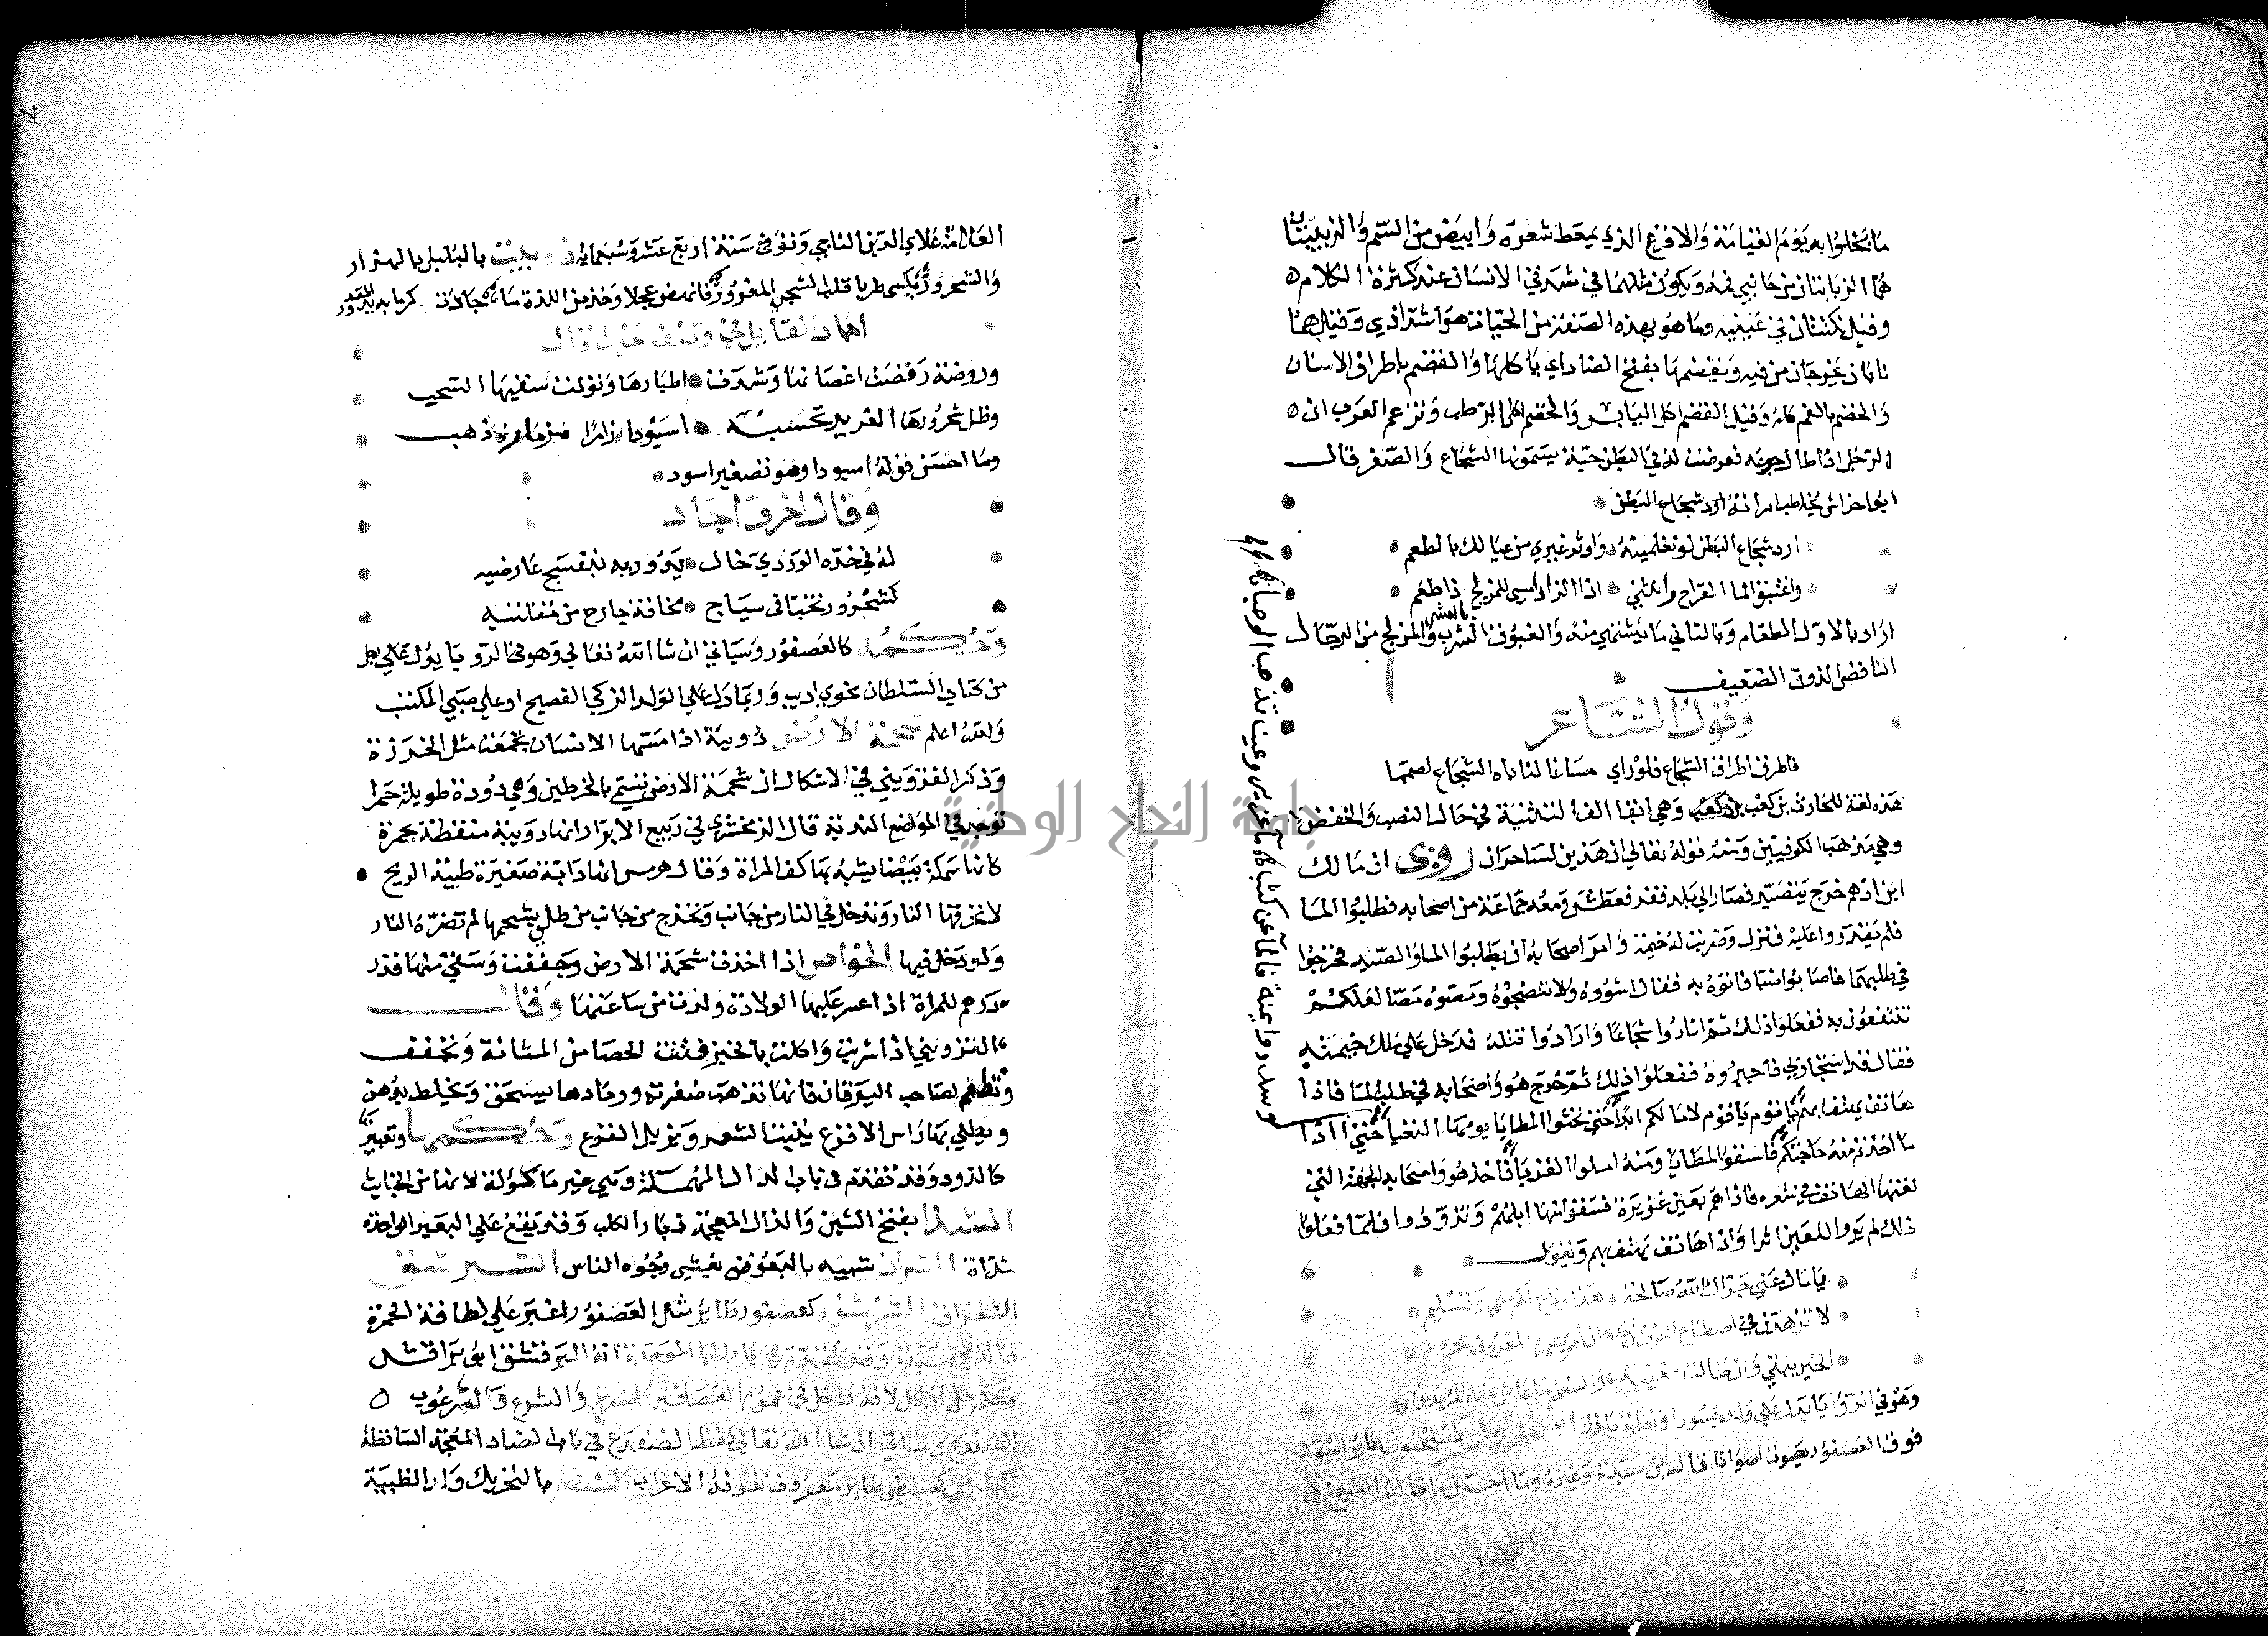 ما بخلوا به يوم القيامة والاقرع الذي يمعط شعره وابيض من السم والزبيبتان
هما الزبابتان من جانبي فمه ويكون مثلهما في شدقي الانسان عند كثرة الكلام
وقيل نكتتان في عينيه وما هو بهذه الصفة من الحيات هو اشد اذي وقيل هما
نابان يخرجان من فيه ويقضمها بفتح الضاد اي ياكلها والقضم باطراف الاسنان
والخضم بالفم كله وقيل القضم اكل اليابس والخضم اكل الرطب وتزعم العرب ان
الرجل اذا طال جوعه تعرضت له في البطن حية يسمونها الشجاع والصفر قال
ابوا خراش يخاطب امراته ارد شجاع البطن
ارد شجاع البطن لو تعلمينه واوثر غيري من عيالك بالطعم
واغتبق الما القراح وانثني اذا الزاد امسى للمزلج ذا طعم
اراد بالاول الطعام وبالثاني ما يشتهي منه والغبوق الشرب بالعشي والمزلج من الرجال
الناقص الدون الضعيف
وقول الشاعر
فاطرق اطراق الشجاع فلو راي مساغا لناباه الشجاع لصمما
هذه لغة للحارث بن كعب وهي ابقا الف التثنية في حال النصب والخفض
وهي مذهب الكوفيين ومنه قوله تعالي ان هذين لساحران روى ان مالك
ابن ادهم خرج يتصيد فصار الي بلد قفر فعطش ومعه جماعة من اصحابه فطلبوا الما
فلم يقدروا عليه فنزل وضربت له خيمة وامر اصحابه ان يطلبوا الما والصيد فخرجوا
في طلبهما فاصابوا ضبا فاتوه به فقال اشووه ولا تنضجوه ومصوه مصا لعلكم
تنتفعون به ففعلوا ذلك ثم اثاروا شجاعا وارادوا قتله فدخل علي ملك خيمته
فقال قد استجار بي فاجيروه ففعلوا ذلك ثم خرج هو واصحابه في طلب الما فاذا
هاتف يهتف بهم يا قوم يا قوم لا ما لكم ابدا حتى تحثوا المطايا يومها التعبا حتي اذا
ما اخذتم منه حاجتكم فاسقوا المطايا ومنه املوا القربا فاخذ هو واصحابه الجهة التي
لغتها الهاتف في شعره فاذا هم بعين غزيرة فسقوا منها ابلهم وتزودوا فلما فعلوا
ذلك لم يروا للعين اثرا واذا هاتف يهتف بهم ويقول
يا مال عني جزاك الله صالحة هذا وداع لكم مني وتسليم
لا تزهدن في اصطناع العرف من احد ان امرؤ يحرم المعروف محروم
الخير يبقي وان طالت مغيبه والشر ما عاش منه المرء مذموم
وهو في الرؤيا يدل علي ولد جسور او امراة باذلة الشحرور كسحنون طاير اسود
فوق العصفور يصوت اصواتا قاله ابن سيدة وغيره وما احسن ما قاله الشيخ
العلامة
العلامة علاي الدين الباجي وتوفى سنة اربع عشر وسبعماية بالبلبل بالهزار
والشحرور يكسى طربا قلب الشجي المغرور فانهض عجلا وخذ من اللذة ما جادت كرما به يد المقدور
وقال
وروضة رقصت اغصانها وشدت اطيارها وتولت سقيها السحب
وظل شحرورها الغريد تحسبه اسيودا زامرا مزماره ذهب
وما احسن قوله اسيودا وهو تصغير اسود
وقال اخر واجاد
له في خده الوردي خال يدور به بنفسج عارضيه
كشحرور تخبا في سياج مخافة جارح من مقلتيه
وحكمه كالعصفور وسياتي ان شا الله تعالي وهو فى الرويا يدل علي رجل
من كتاب السلطان نحوي اديب وربما دل علي الولد الذكي الفصيح او علي صبي المكتب
والله اعلم شحمة الارض دويبة اذا مسها الانسان تجمعت مثل الخرزة
وذكر القزويني في الاشكال ان شحمة الارض تسمي بالخراطين وهي دودة طويلة حمرا
توجد في المواضع الندية قال الزمخشري في ربيع الابرار انها دويبة منقطة بحمرة
كانها سمكة بيضا يشبه بها كف المراة وقال هرمس انها دابة صغيرة طيبة الريح
لا تحرقها النار وتدخل في النار من جانب وتخرج من جانب من طلي بشحمها لم تضره النار
ولو دخل فيها الخواص اذا اخذت شحمة الارض وجففت وسقي منها قدر
درهم للمراة اذا عسر عليها الولادة ولدت من ساعتها وقال
القزويني اذا شربت واكلت بالخبز فتتت الحصا من المثانة وتجفف
وتطعم لصاحب اليرقان فانها تذهب صفرته ورمادها يسحق ويخلط بدهن
ويطلي بها راس الاقرع ينبت الشعر ويزيل القرع وحكمها وتعبيرها
كالدود وقد تقدم فى باب الدال المهملة وهي غير ماكولة لانها من الخبايث
الشذا بفتح الشين والذال المعجمة ذباب الكلب وقد يقع علي البعير الواحدة
شذاة الشران شبيه بالبعوض يغشي وجوه الناس الشرشق
الشقراق الشرشور كعصفور طاير مثل العصفور اغبر علي لطافة الحمرة
قاله ابن سيدة وقد تقدم في باب البا الموحدة انه البرقش ابو براقش
وحكمه حل الاكل لانه داخل في عموم العصافير الشرغ والشرغ والشرغوب
الضفدع وسياتي ان شا الله تعالي لفظ الضفدع في باب الضاد المعجمة الساقطة
كحبنطي طاير معروف تعرفه الاعراب الشصر بالتحريك ولد الظبية
جامعة النجاح الوطنية